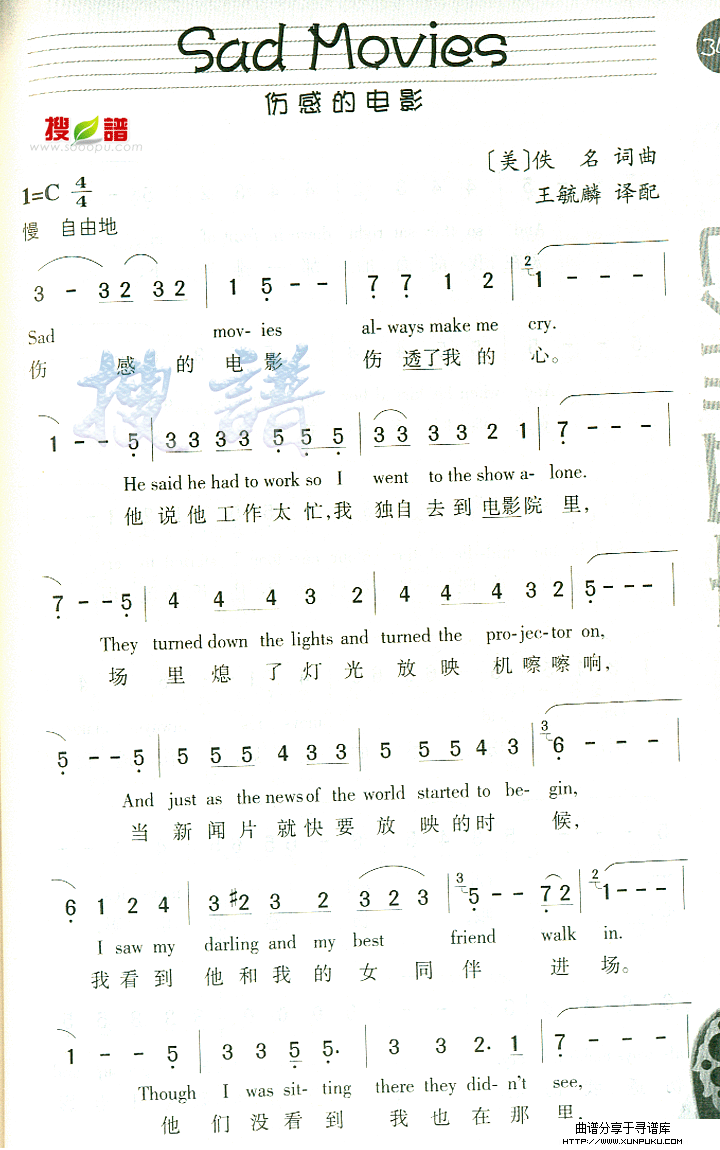 Sad Movies
34
伤感的电影
搜谱
www.sooopu.com
〔美〕佚 名 词曲
1=C 4/4
王毓麟 译配
慢 自由地
3 - 3 2 3 2 | 1 5 - - | 7 7 1 2 | 2 1 - - -
Sad mov- ies al- ways make me cry.
伤 感 的 电 影 伤 透了我 的 心。
搜譜
1 - - 5 | 3 3 3 3 5 5 5 | 3 3 3 3 2 1 | 7 - - -
He said he had to work so I went to the show a- lone.
他 说 他 工 作 太 忙,我 独自 去 到 电影院 里,
7 - - 5 | 4 4 4 3 2 | 4 4 4 3 2 | 5 - - -
They turned down the lights and turned the pro-jec-tor on,
场 里 熄 了 灯 光 放 映 机 嚓 嚓 响,
5 - - 5 | 5 5 5 5 3 3 | 5 5 5 4 3 | 3 6 - - -
And just as the news of the world started to be- gin,
当 新 闻 片 就 快 要 放 映 的 时 候,
6 1 2 4 | 3 #2 3 2 3 2 3 | 3 5 - - 7 2 | 2 1 - - -
I saw my darling and my best friend walk in.
我 看 到 他 和 我 的 女 同 伴 进 场。
1 - - 5 | 3 3 3 5 5. | 3 3 2. 1 | 7 - - -
Though I was sit- ting there they did- n't see,
他 们 没 看 到 我 也 在 那 里,
曲谱分享于寻谱库
HTTP://WWW.XUNPUKU.COM